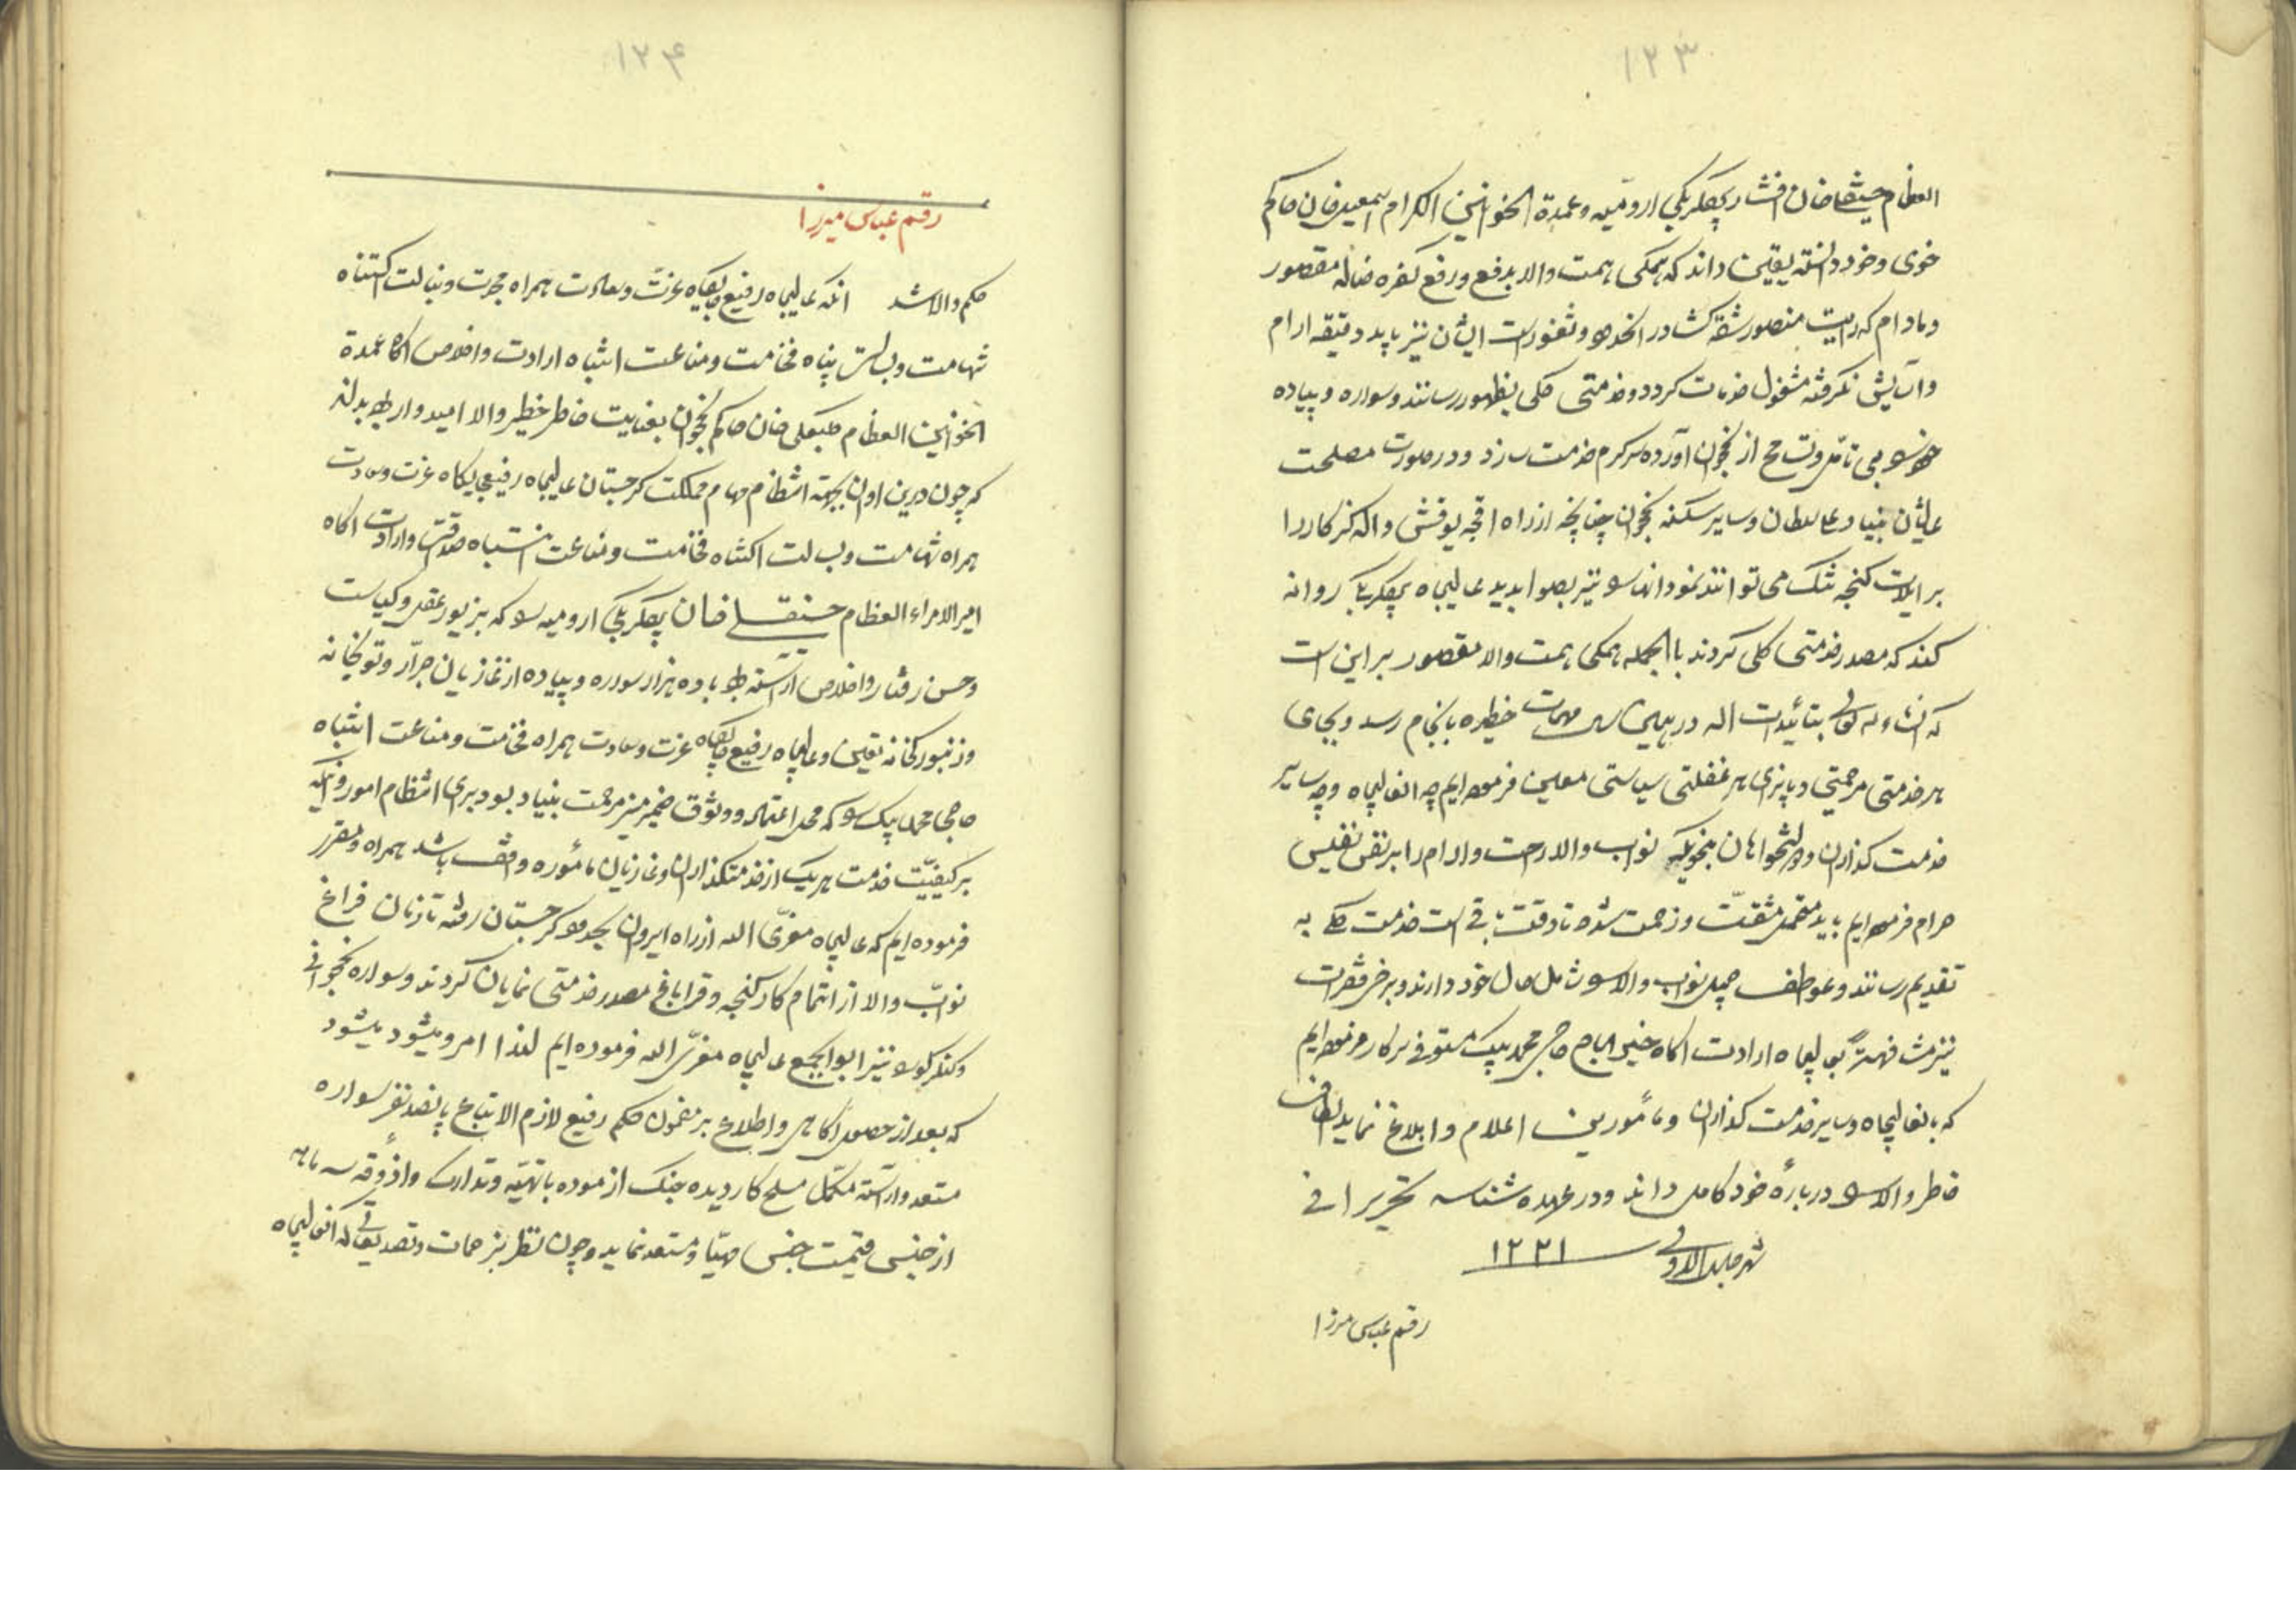 ۱۲۳
العظام حسینقلیخان افشار بیگلربیگی ارومیه و عمدة الخوانین الکرام اسمعیل خان حاکم
خوی و خود دانسته یقین داند که همگی همت والا بدفع و رفع کفره ضاله مقصور
و مادام که رایت منصور شقه کشا در انحدود و ثغور است ایشان نیز باید دقیقه ارام
و آسایش نکرفته مشغول خدمات کردد و خدمتی کلی بظهور رسانند و سواره و پیاده
خود را بی تامل و تسامح از نخجوان آورده سرکرم خدمت سازد و در صورت مصلحت
عالیشان بنیاد علی سلطان و سایر سکنه نخجوان چنانچه از راه اقچه یوقش و الکنز کار را
بر ایلات کنجه تنک می توانند نمود انها را نیز بصوابدید عالیجاه بیگلربیگی روانه
کند که مصدر خدمتی کلی کردند با الجمله همکی همت والا مقصور بر این است
که انشاءالله تعالی بتائیدات اله در همین سال مهمات خطیره بانجام رسد و بجای
هر خدمتی مرحمتی و بپزای هر غفلتی سیاستی معین فرموده ایم چه انعالیجاه و چه سایر
خدمت کذاران و دولتخواهان بنحویکه نواب والا راحت و ارام را بر نفس نفیس
حرام فرموده ایم باید متحمل مشقت و زحمت شده تا وقت باقی است خدمت کلی به
تقدیم رسانند و عواطف جمیل نواب والا را شامل حال خود دارند و برخی فقرات
نیز مشافهةً بعالیجاه ارادت اکاه خیر الحاج حاجی محمد بیک مستوفی سرکار فرموده ایم
که بانعالیجاه و سایر خدمت کذاران و مأمورین اعلام و ابلاغ نماید الطاف
خاطر والا را در بارهٔ خود کامل داند و در عهده شناسد تحریرا فی
شهر جمادی الاولی ۱۲۲۱
رقم عباس میرزا
۱۲۴
رقم عباس میرزا
حکم والا شد انکه عالیجاه رفیع جایگاه عزت و سعادت همراه مجدت و نبالت اکتناه
شهامت و بسالت پناه فخامت و مناعت انتباه ارادت و اخلاص اکاه عمدة
الخوانین العظام کلبعلی خان حاکم نخجوان بعنایت خاطر خطیر والا امیدوار بوده بداند
که چون درین اوان بجهة انتظام مهام مملکت کرجستان عالیجاه رفیع جایکاه عزت و سعادت
همراه شهامت و بسالت اکتناه فخامت و مناعت انتباه صداقت و ارادت اکاه
امیر الامراء العظام حسنقلی خان بیگلربیگی ارومیه را که بزیور عقل و کیاست
و حسن رفتار و اخلاص آراسته بود با ده هزار سواره و پیاده از غازیان جرّار و توپخانه
و زنبورکخانه تعیین و عالیجاه رفیع جایگاه عزت و سعادت همراه فخامت و مناعت انتباه
حاجی محمد بیک را که محل اعتماد و وثوق ضمیر منیر مرحمت بنیاد بود برای انتظام امور و اینکه
بر کیفیّت خدمت هریک از خدمتکذاران و غازیان مأموره واقف باشد همراه و مقرر
فرموده ایم که عالیجاه معزّی الیه از راه ایروان بحدود کرجستان رفته تا زمان فراغ
نوّاب والا از اتمام کار کنجه و قراباغ مصدر خدمتی نمایان کردند و سواره نخجوانی
و کنکرلو را نیز ابوابجمع عالیجاه معزّی الیه فرموده ایم لهذا امر و میشود
که بعد از حصول اکاهی و اطلاع بر مضمون حکم رفیع لازم الاتباع پانصد نفر سواره
مستعد و اراسته مکمل مسلح کار دیده جنک ازموده با تهیّه و تدارک و اذوقه سه ماهه
از جنس و قیمت جنس مهیّا و مستعد نماید و چون نظر بزحمات و تصدیقاتی که انعالیجاه